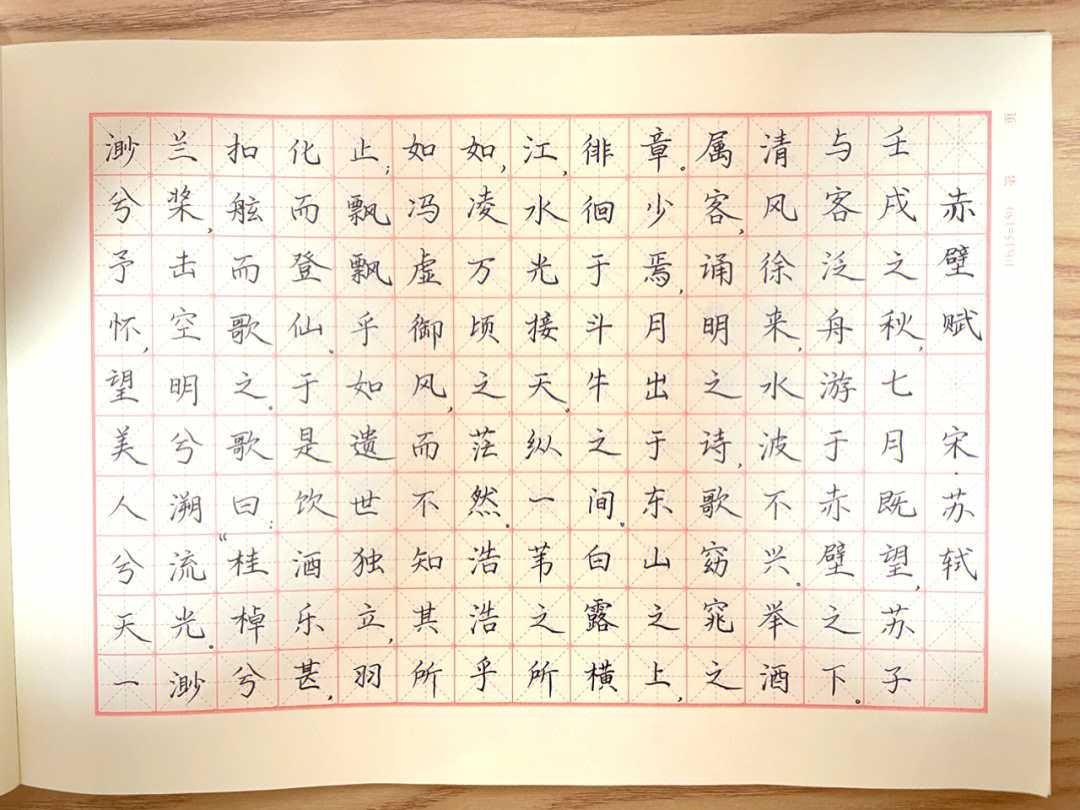 赤壁赋 宋·苏轼
壬戌之秋,七月既望,苏子
与客泛舟游于赤壁之下。
清风徐来,水波不兴。举酒
属客,诵明之诗,歌窈窕之
章。少焉,月出于东山之上,
徘徊于斗牛之间。白露横
江,水光接天。纵一苇之所
如,凌万顷之茫然。浩浩乎
如冯虚御风,而不知其所
止;飘飘乎如遗世独立,羽
化而登仙。于是饮酒乐甚,
扣舷而歌之。歌曰:“桂棹兮
兰桨,击空明兮溯流光。渺
渺兮予怀,望美人兮天一